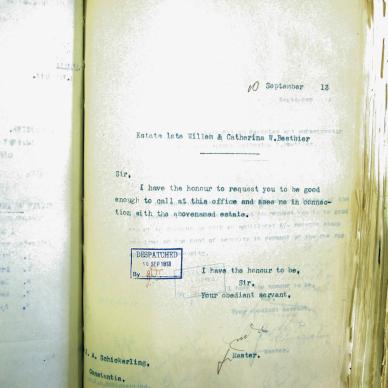 10 September 13
Estate late Willem & Catharina W.Basthier
Sir,
I have the honour to request you to be good
enough to call at this office and sees me in connec-
tion with the abovenamed estate.
DESPATCHED
10 SEP 1913
By
I have the honour to be,
Sir,
Your obedient servant,
Master.
A. Schickerling,
Constantia.